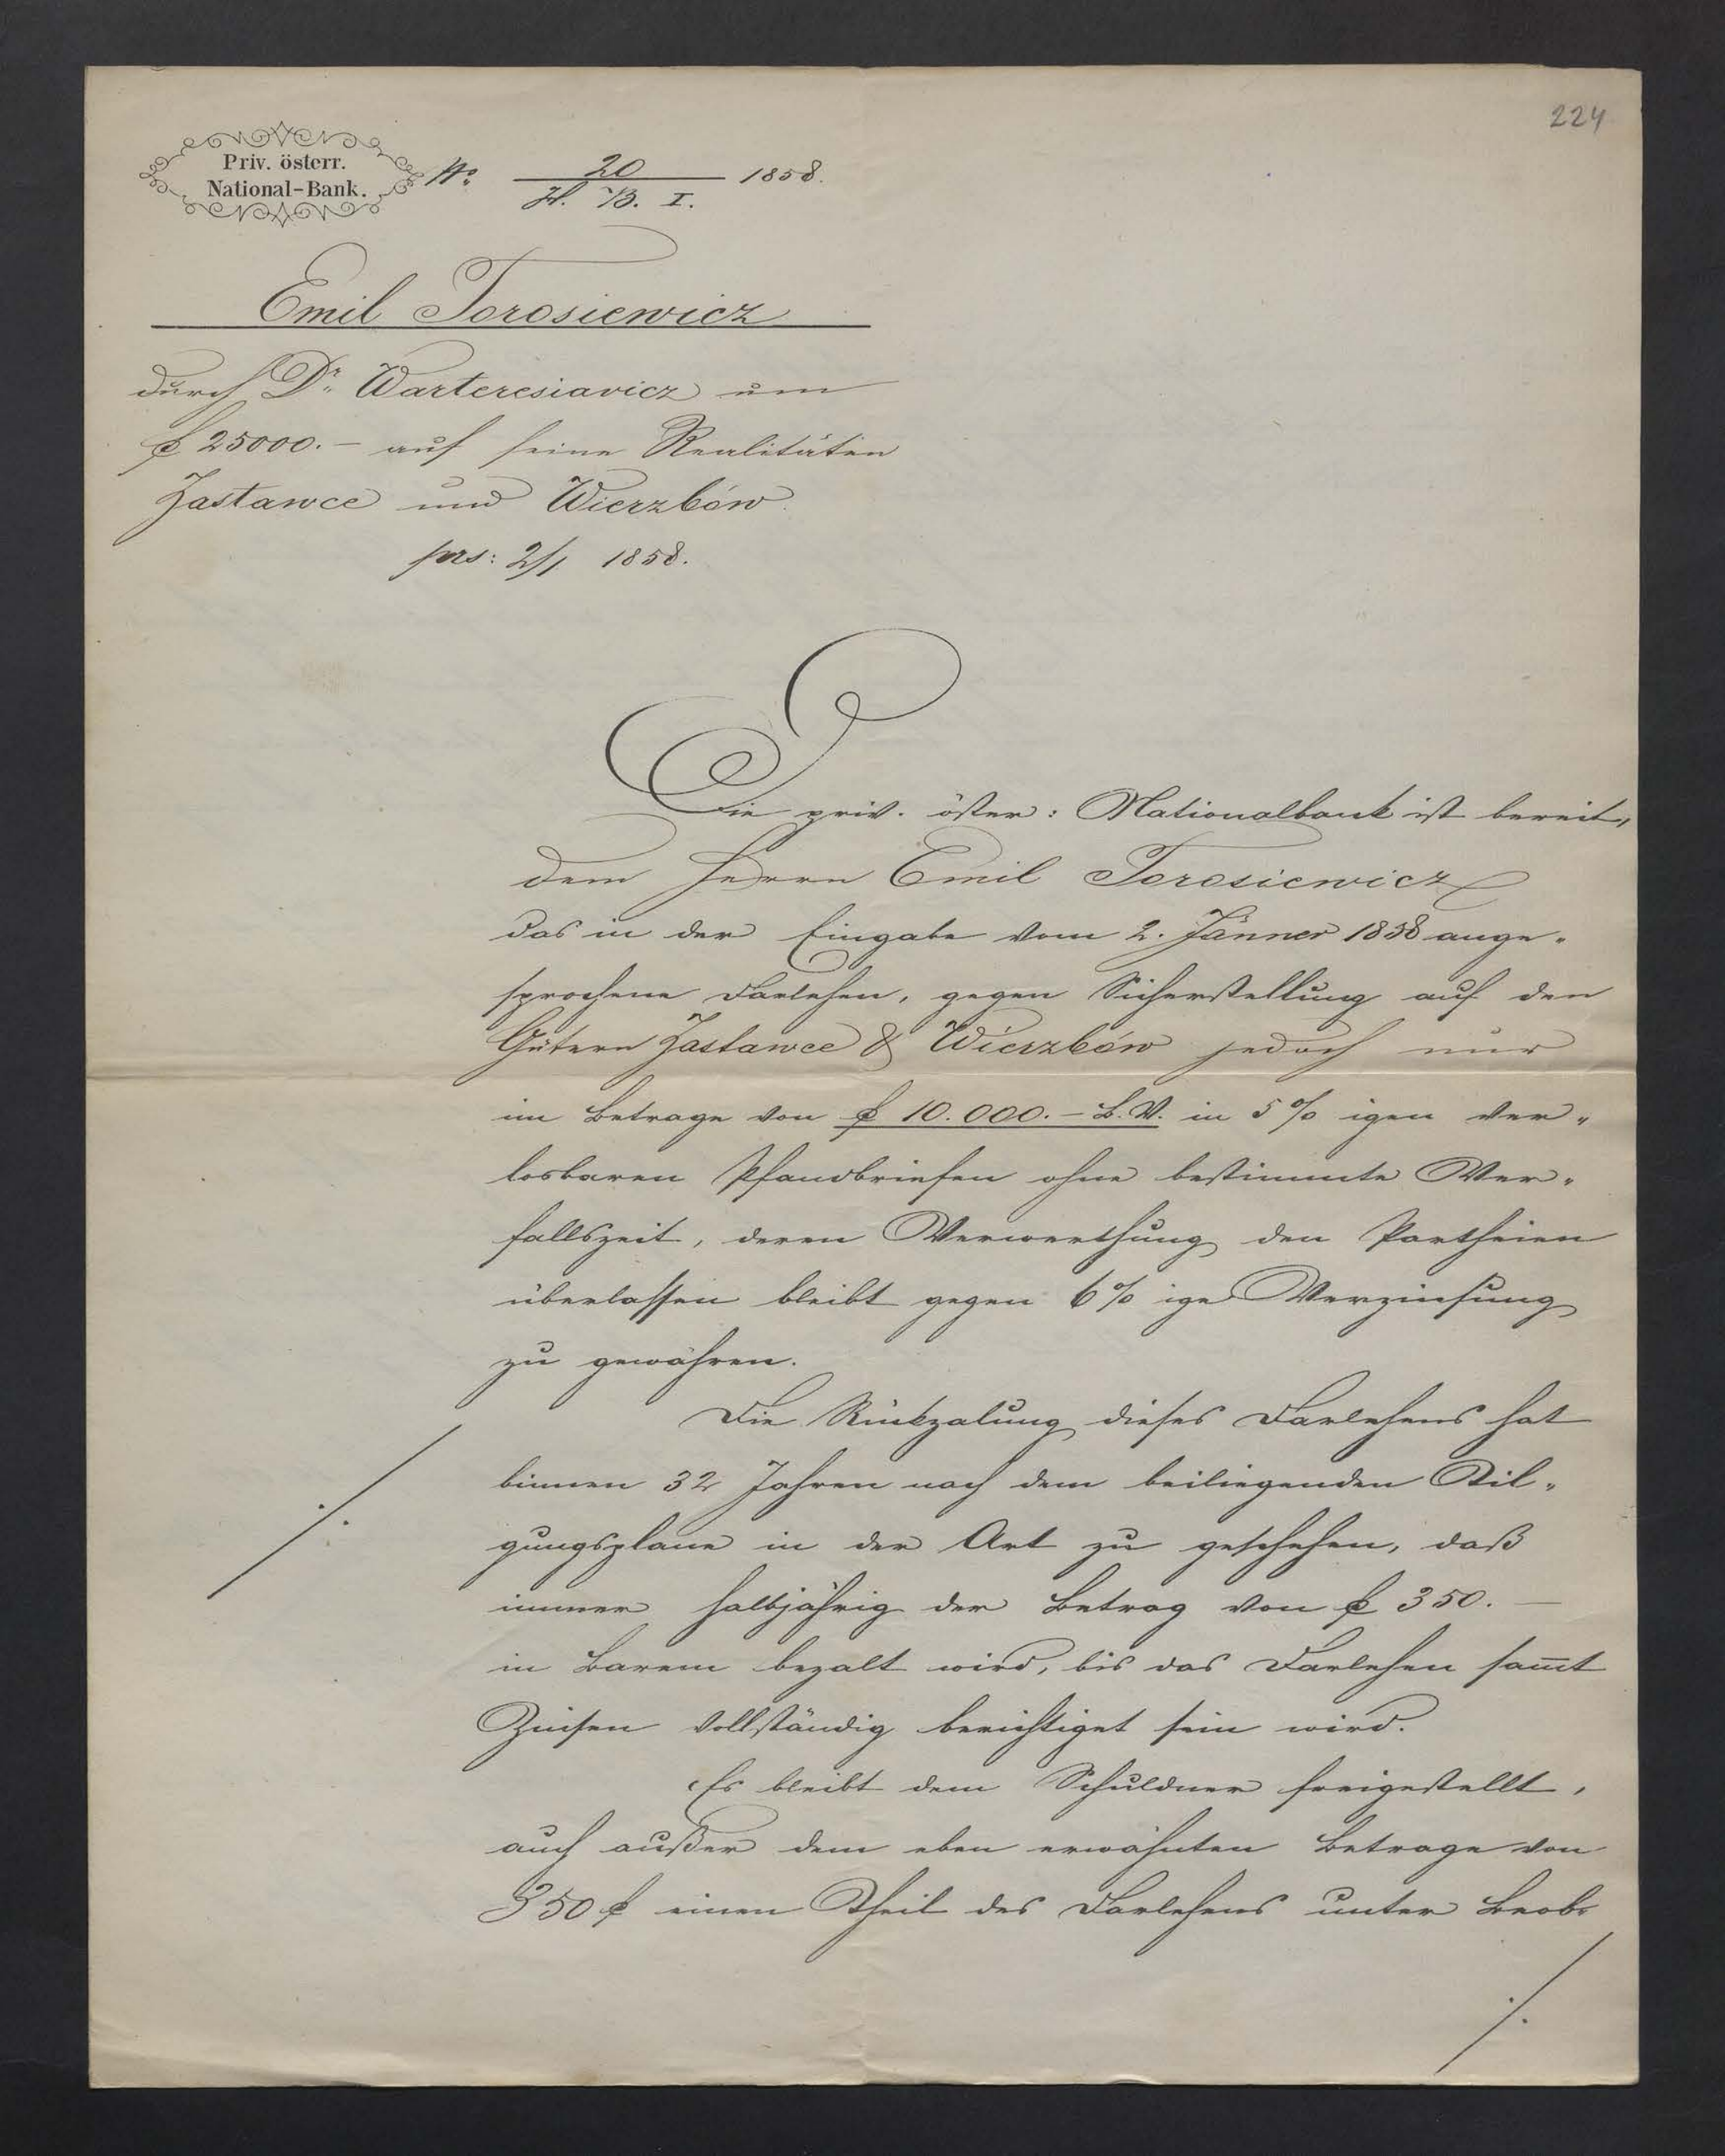 224
Priv. österr.
National-Bank.
No 20 1858.
H. B. I.
Emil Torosiewicz
durch Dr. Warteresiavicz um
f 25000.- auf seine Realitäten
Zastawce und Wierzbów
prs: 2/1 1858.
Die priv. österr: Nationalbank ist bereit,
dem Herrn Emil Torosiewicz
das in der Eingabe vom 2. Jänner 1858 ange-
sprochene Darlehen, gegen Sicherstellung auf den
Gütern Zastawce & Wierzbów jedoch nur
im Betrage von f 10.000.- B.V. in 5% igen ver-
losbaren Pfandbriefen ohne bestimmte Ver-
fallszeit, deren Verwerthung den Partheien
überlassen bleibt gegen 6% ige Verzinsung
zu gewähren.
Die Rückzalung dieses Darlehens hat
binnen 32 Jahren nach dem beiliegenden Til-
gungsplane in der Art zu geschehen, daß
immer halbjährig der Betrag von f 350.-
in Barem bezalt wird, bis das Darlehen sam̅t
Zinsen vollständig berichtiget sein wird.
Es bleibt dem Schuldner freigestellt,
auch außer dem eben erwähnten Betrage von
350 f einen Theil des Darlehens unter Beob-